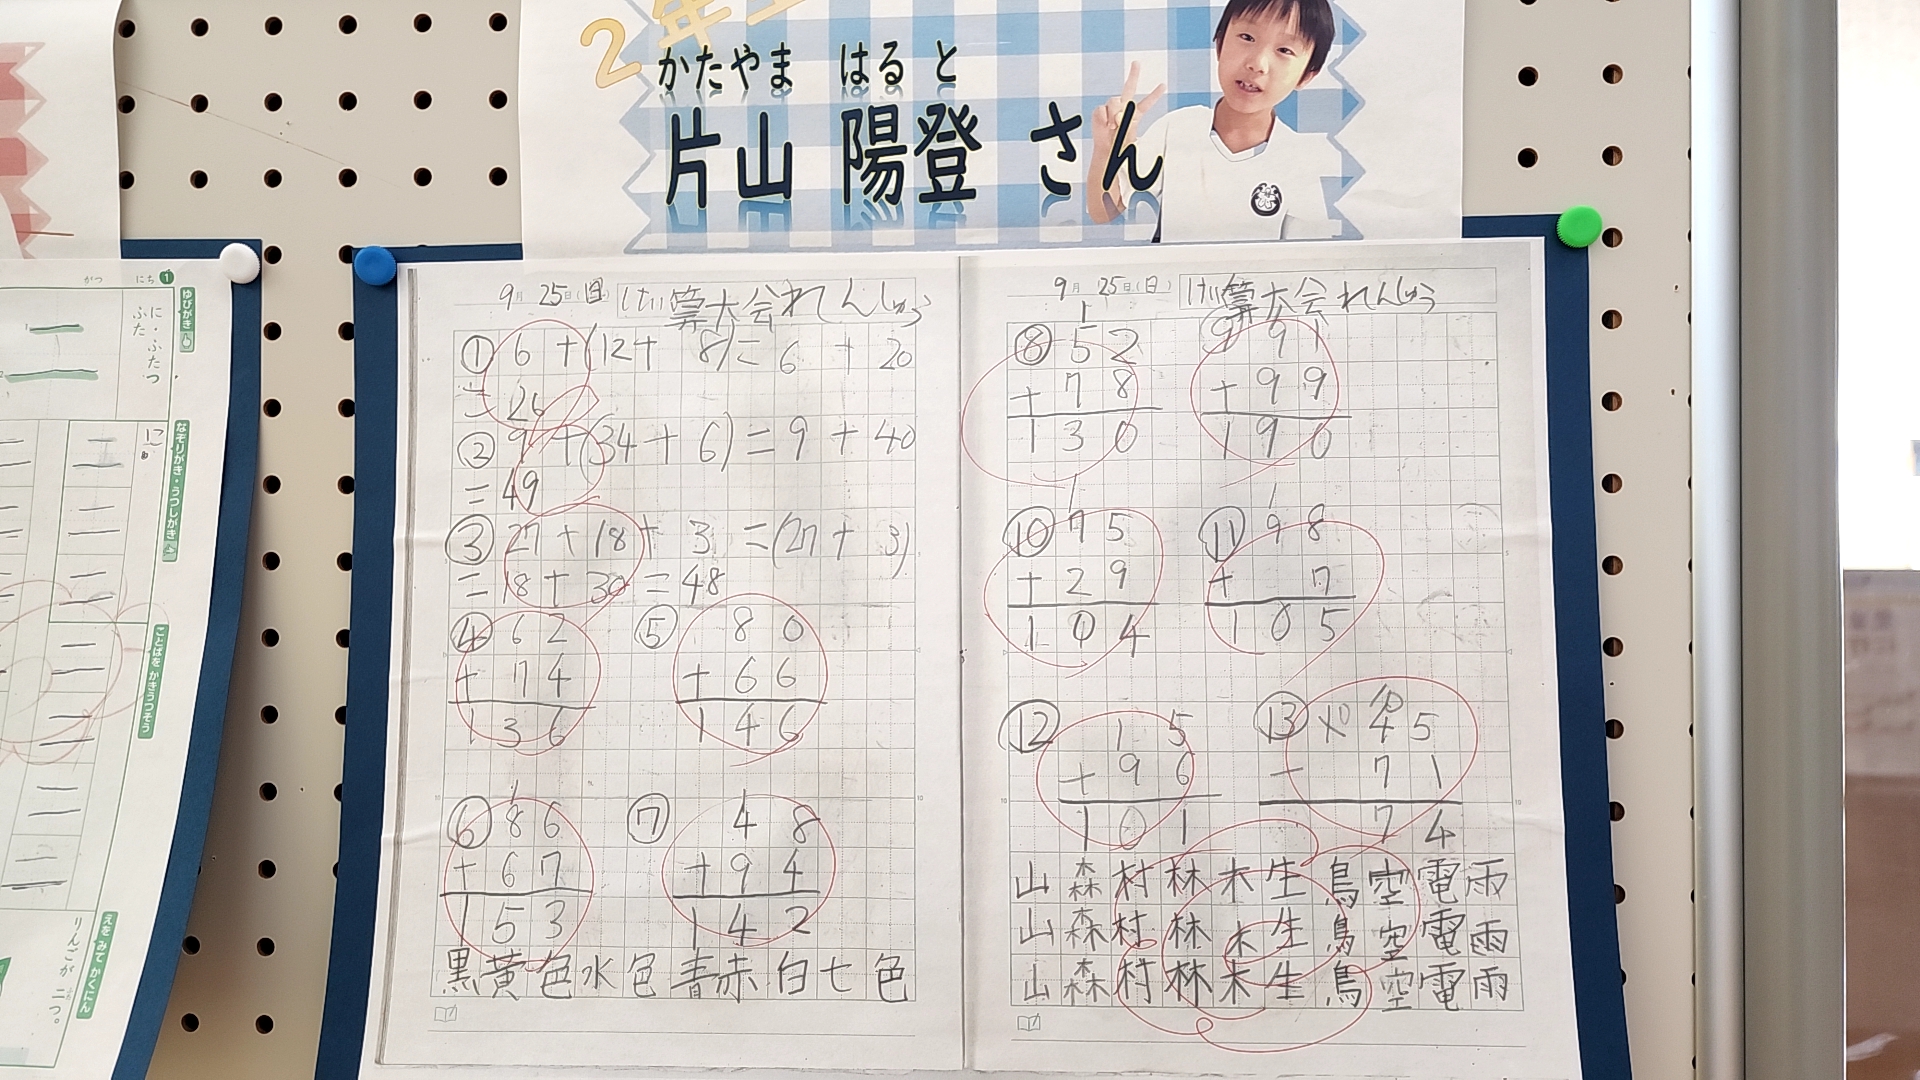 2年
かたやま はると
片山 陽登 さん
9月 25日(日) けい算大会れんしゅう
① 6 + (12 + 8) = 6 + 20
= 26
② 9 + (34 + 6) = 9 + 40
= 49
③ 27 + 18 + 3 = (27 + 3)
= 18 + 30 = 48
④ 62 ⑤ 80
+ 74 + 66
136 146
1
⑥ 86 ⑦ 48
+ 67 + 94
153 142
黒黄色水色青赤白七色
9月 25日(日) けい算大会れんしゅう
1
⑧ 52 ⑨ 91
+ 78 + 99
130 190
1 1
⑩ 75 ⑪ 98
+ 29 + 7
104 105
⑫ 15 ⑬ 145
+ 96 - 71
101 74
山森村林木生鳥空電雨
山森村林木生鳥空電雨
山森村林木生鳥空電雨
がつ にち 1
ゆびがき
に・ふたつ
ふた
なぞりがき・うつしがき
ことばを かきうつそう
えを みて かくにん
りんごが 二つ。